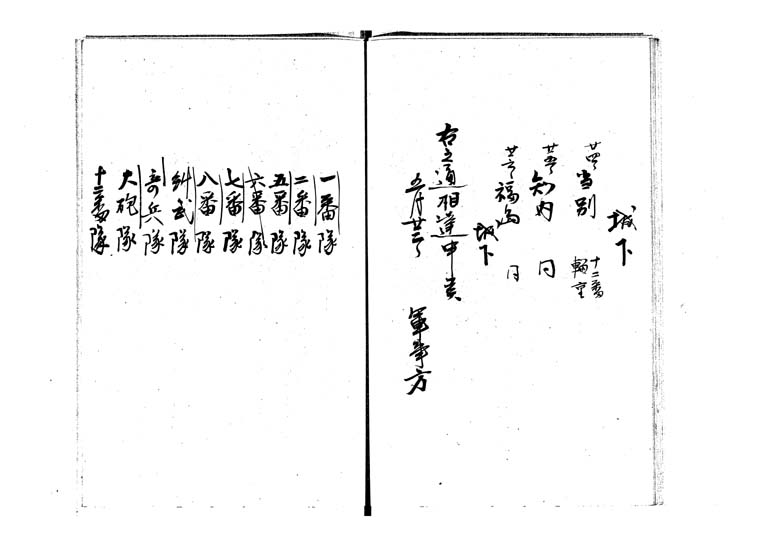 城下
廿四日 当別 十二番 輜重
廿五日 知内 同
廿六日 福島 同
城下
右之通相達申候
五月廿三日
軍事方
一番隊
二番隊
五番隊
六番隊
七番隊
八番隊
糾武隊
奇兵隊
大砲隊
十二番隊